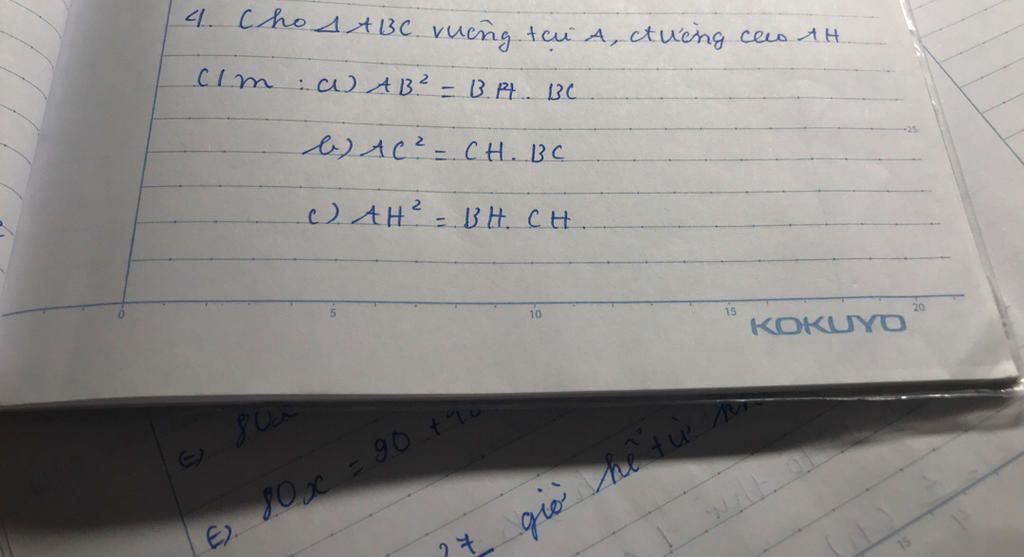 4. Cho Δ ABC vuông tại A, đường cao AH
C/m : a) AB² = BH. BC
b) AC² = CH. BC
c) AH² = BH. CH.
25
0 5 10 15 20
KOKUYO
80x
80x = 90 +
giờ kể từ
15